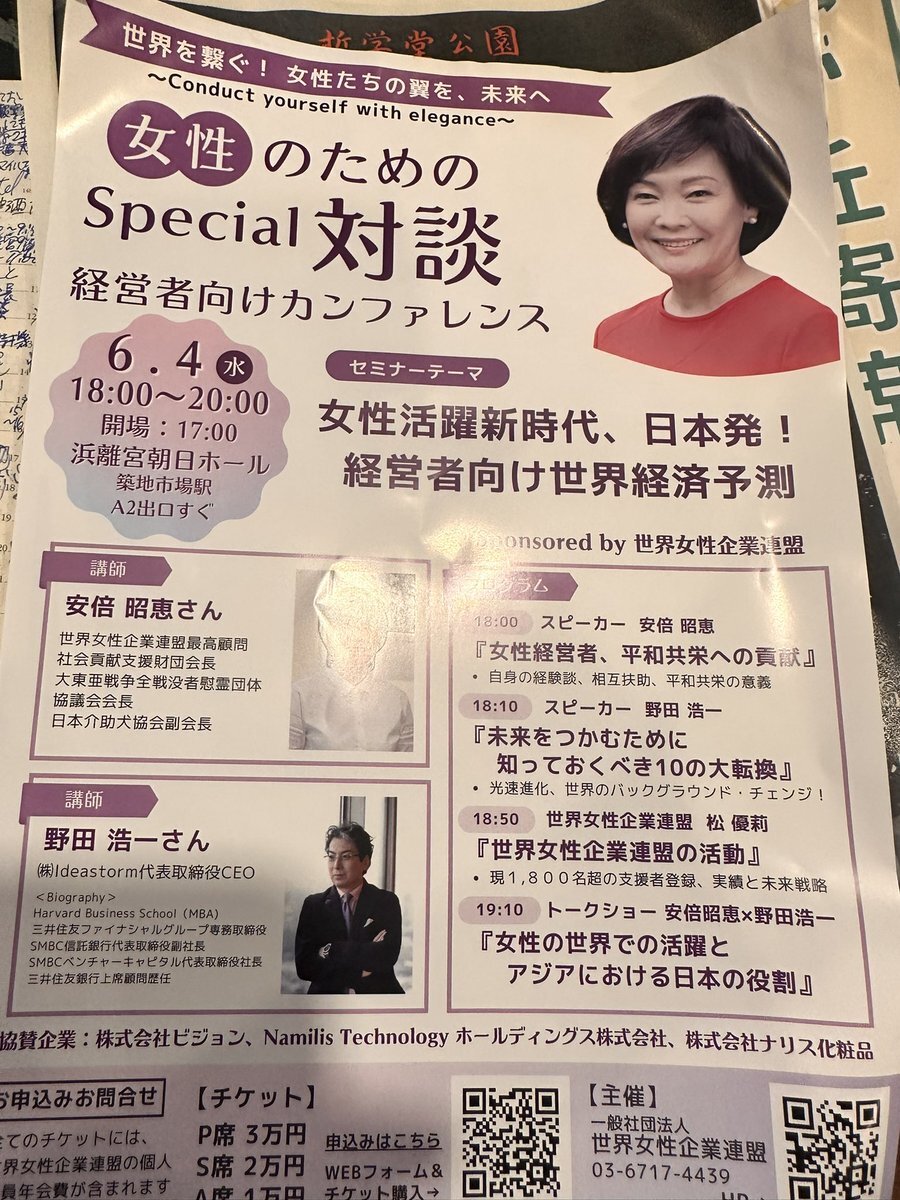 哲学堂公園
世界を繋ぐ！ 女性たちの翼を、未来へ
～Conduct yourself with elegance～
女性のための
Special対談
経営者向けカンファレンス
6.4水
18:00～20:00
開場：17:00
浜離宮朝日ホール
築地市場駅
A2出口すぐ
セミナーテーマ
女性活躍新時代、日本発！
経営者向け世界経済予測
Sponsored by 世界女性企業連盟
講師
安倍 昭恵さん
世界女性企業連盟最高顧問
社会貢献支援財団会長
大東亜戦争全戦没者慰霊団体
協議会会長
日本介助犬協会副会長
講師
野田 浩一さん
㈱Ideastorm代表取締役CEO
＜Biography＞
Harvard Business School（MBA）
三井住友ファイナンシャルグループ専務取締役
SMBC信託銀行代表取締役副社長
SMBCベンチャーキャピタル代表取締役社長
三井住友銀行上席顧問歴任
プログラム
18:00 スピーカー 安倍 昭恵
『女性経営者、平和共栄への貢献』
• 自身の経験談、相互扶助、平和共栄の意義
18:10 スピーカー 野田 浩一
『未来をつかむために
知っておくべき10の大転換』
• 光速進化、世界のバックグラウンド・チェンジ！
18:50 世界女性企業連盟 松 優莉
『世界女性企業連盟の活動』
• 現１,８００名超の支援者登録、実績と未来戦略
19:10 トークショー 安倍昭恵×野田浩一
『女性の世界での活躍と
アジアにおける日本の役割』
協賛企業：株式会社ビジョン、Namilis Technology ホールディングス株式会社、株式会社ナリス化粧品
お申込みお問合せ
全てのチケットには、
世界女性企業連盟の個人
会員年会費が含まれます
【チケット】
P席 3万円
S席 2万円
A席 1万円
申込みはこちら
WEBフォーム＆
チケット購入→
【主催】
一般社団法人
世界女性企業連盟
03-6717-4439
HP